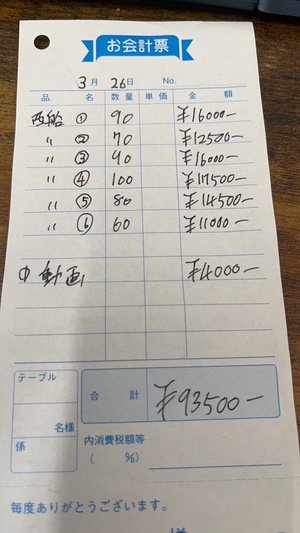 お会計票
3月 26日 No.
品名 数量 単価 金額
西船 ① 90 ¥16000-
〃 ② 70 ¥12500-
〃 ③ 90 ¥16000-
〃 ④ 100 ¥17500-
〃 ⑤ 80 ¥14500-
〃 ⑥ 60 ¥11000-
① 動画 ¥4000-
テーブル
名様
係
合計 ¥93500-
内消費税額等
( %)
毎度ありがとうございます。